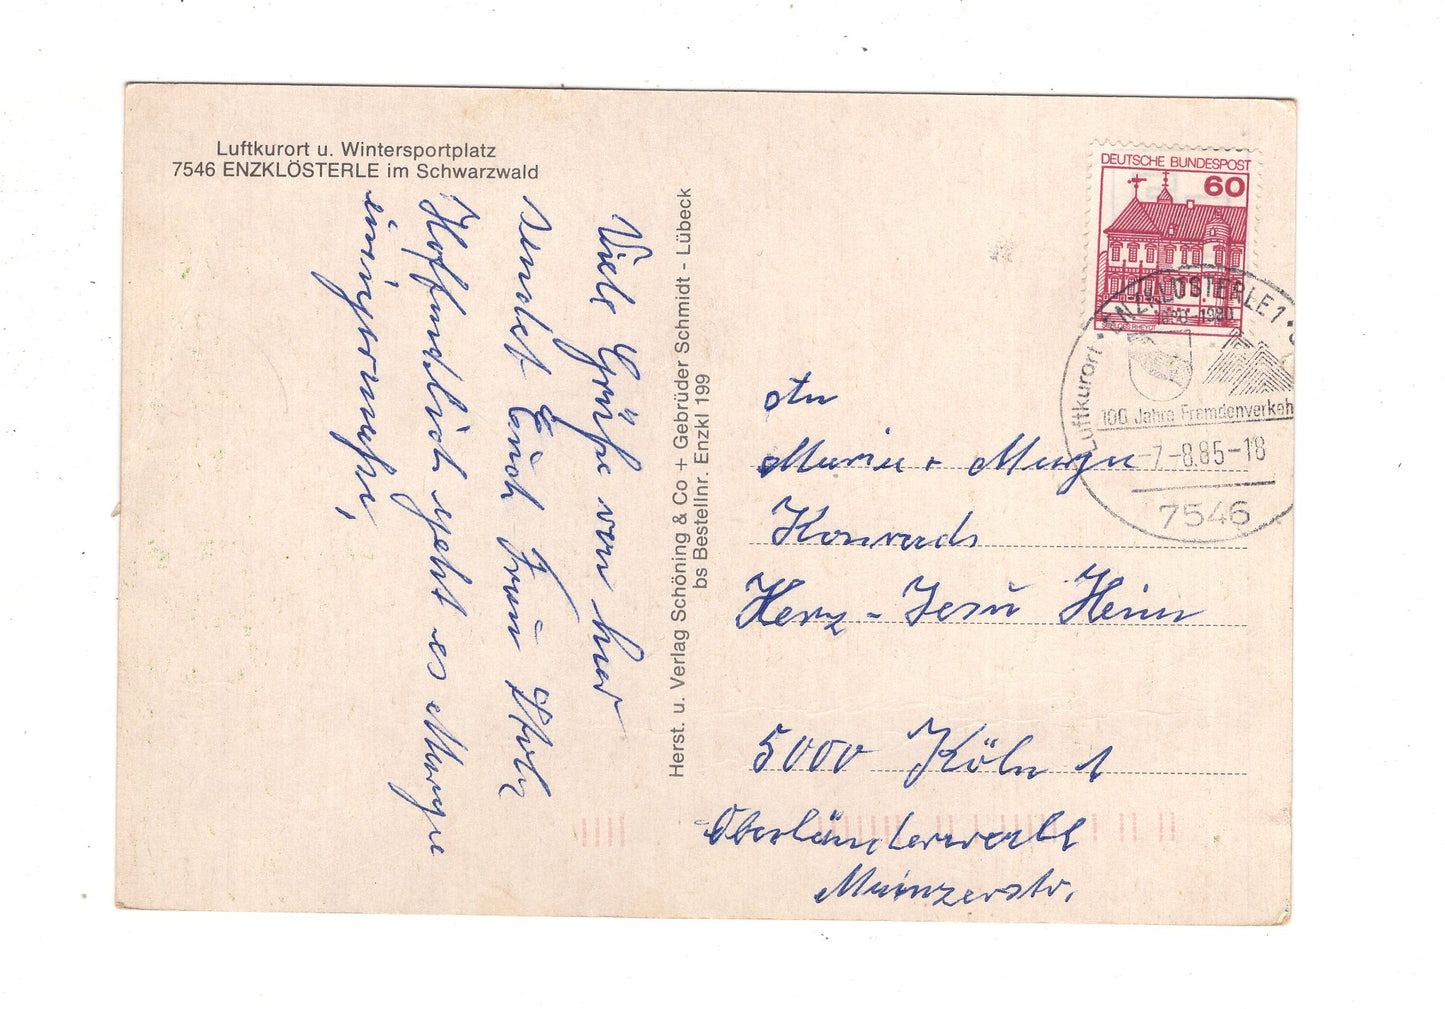 Luftkurort u. Wintersportplatz
7546 ENZKLÖSTERLE im Schwarzwald
Viele Grüße von hier
sendet Euch Frau Holz
Hoffendlich geht es Marga
einigermaßen,
Herst. u. Verlag Schöning & Co + Gebrüder Schmidt - Lübeck
bs Bestellnr. Enzkl 199
DEUTSCHE BUNDESPOST
60
SCHLOSS RHEYDT
Luftkurort · ENZKLÖSTERLE 1 ·
100 Jahre Fremdenverkeh
-7.-8.85-18
7546
An
Maria + Marga
Konrads
Herz-Jesu Heim
5000 Köln 1
Oberländerwall
Mainzerstr.